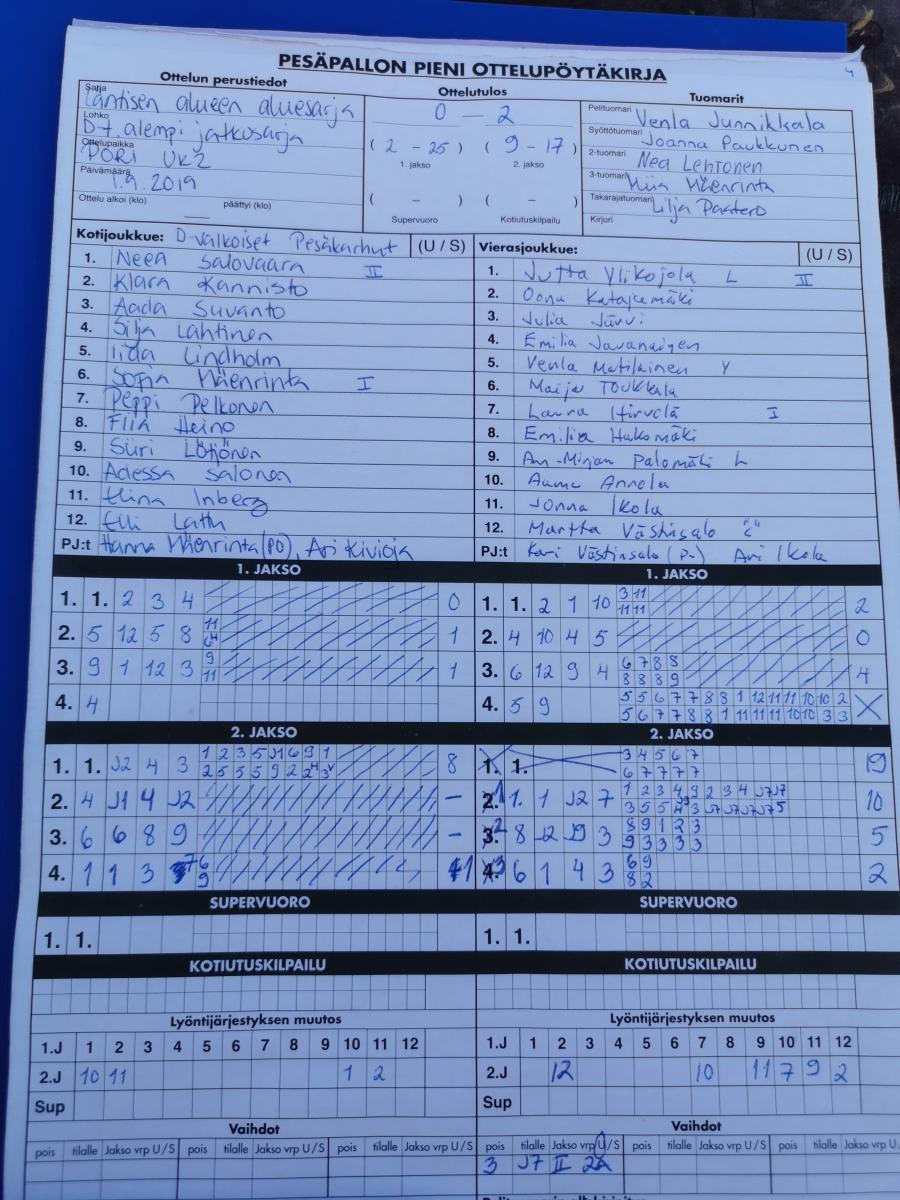 PESÄPALLON PIENI OTTELUPÖYTÄKIRJA
4
Ottelun perustiedot
Sarja Läntisen alueen aluesarja
Lohko D-t. alempi jatkosarja
Ottelupaikka PORI UK2
Päivämäärä 1.9.2019
Ottelu alkoi (klo) päättyi (klo)
Ottelutulos
0 – 2
( 2 - 25 ) ( 9 - 17 )
1. jakso 2. jakso
( - ) ( - )
Supervuoro Kotiutuskilpailu
Tuomarit
Pelituomari Venla Junnikkala
Syöttötuomari Joanna Paukkunen
2-tuomari Nea Lehtonen
3-tuomari Miia Mäenrinta
Takarajatuomari Lilja Paatero
Kirjuri
Kotijoukkue: D-valkoiset Pesäkarhut (U / S)
1. Neea Salovaara II
2. Klara Kannisto
3. Aada Suvanto
4. Silja Lahtinen
5. Iida Lindholm
6. Sofia Mäenrinta I
7. Peppi Pelkonen
8. Fiia Heino
9. Siiri Lötjönen
10. Adessa Salonen
11. Elina Inberg
12. Elli Lathi
PJ:t Hanna Mäenrinta (PO), Ari Kivioja
Vierasjoukkue: (U / S)
1. Jutta Ylikojola L II
2. Oona Katajamäki
3. Julia Järvi
4. Emilia
5. Venla Matilainen Y
6. Maija Toukkala
7. Laura Hirvelä I
8. Emilia Hakomäki
9. Ann-Mirjam Palomäki L
10. Annola
11. Jonna Ikola
12. Martta Västinsalo "C"
PJ:t Kari Västinsalo (P-) Ari Ikola
1. JAKSO
1. 1. 2 3 4 0
2. 5 12 5 8 1
3. 9 1 12 3 9 11 1
4. 4
1. JAKSO
1. 1. 2 1 10 3 11 11 11 2
2. 4 10 4 5 0
3. 6 12 9 4 6 7 8 8 8 8 8 9 4
4. 5 9 5 5 6 7 7 8 8 1 12 11 11 10 10 2 X
5 6 7 7 8 8 1 11 11 11 10 10 3 3
2. JAKSO
1. 1. J2 4 3 1 2 3 5 J1 6 9 1 8
2. 4 J1 4 J2 –
3. 6 6 8 9 –
4. 1 1 3 1
2. JAKSO
1. 1. 3 4 5 6 7 6 7 7 7 7 19
1 1. 1 J2 7 10
2 8 J2 J9 3 8 9 1 2 3 9 3 3 3 3 5
3 6 1 4 3 6 9 8 2 2
SUPERVUORO
1. 1.
SUPERVUORO
1. 1.
KOTIUTUSKILPAILU
KOTIUTUSKILPAILU
Lyöntijärjestyksen muutos
1.J 1 2 3 4 5 6 7 8 9 10 11 12
2.J 10 11 1 2
Sup
Lyöntijärjestyksen muutos
1.J 1 2 3 4 5 6 7 8 9 10 11 12
2.J 12 10 11 7 9 2
Sup
Vaihdot
pois tilalle Jakso vrp U / S pois tilalle Jakso vrp U / S pois tilalle Jakso vrp U / S
Vaihdot
pois tilalle Jakso vrp U / S pois tilalle Jakso vrp U / S pois tilalle Jakso vrp U / S
3 J7 II 2A